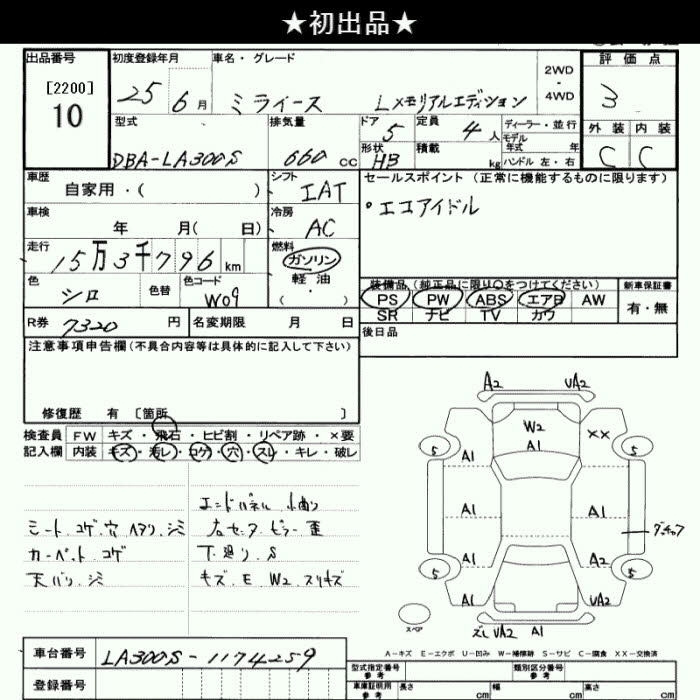 ★初出品★
出品番号
[2200]
10
初度登録年月
25 6月
車名・グレード
ミライース Lメモリアルエディション
2WD
・
4WD
評価点
3
外装 内装
C C
型式
DBA-LA300S
排気量
660 cc
ドア 5
形状 HB
定員 4 人
積載 kg
ディーラー・並行
モデル
年式 年
ハンドル 左・右
車歴
自家用・( )
シフト
IAT
セールスポイント (正常に機能するものに限ります)
・エコアイドル
車検
年 月( 日)
冷房
AC
走行
15万3千796 km
燃料
ガソリン
軽油
( ・ )
色
シロ
色替
色コード
W09
装備品 (純正品に限り○をつけてください)
PS PW ABS エアB AW
SR ナビ TV カワ
新車保証書
有・無
R券 7320 円
名変期限 月 日
後日品
注意事項申告欄(不具合内容等は具体的に記入して下さい)
修復歴 有 〔箇所 〕
検査員
記入欄
FW キズ・飛石・ヒビ割・リペア跡・×要
内装 キズ・汚レ・コゲ・穴・スレ・キレ・破レ
シート コゲ.穴 ヘタリ.シミ
カーペット コゲ
天バリ.シミ
エンドパネル 小曲り
右センターピラー 歪
下廻り S
キズ.E W2 スリキズ
A2 UA2
W2
A1
XX
5 5
A1
A1 A1
ゲ.チャフ
A1 A2
5 5
A1 UA2
スペア
ズレ UA2 A1
A-キズ E-エクボ U-凹み W-補修跡 S-サビ C-腐食 XX-交換済
車台番号
LA300S-1174259
登録番号
型式指定番号
参考
類別区分番号
参考
車庫証明用
参考
長さ cm
幅 cm
高さ cm